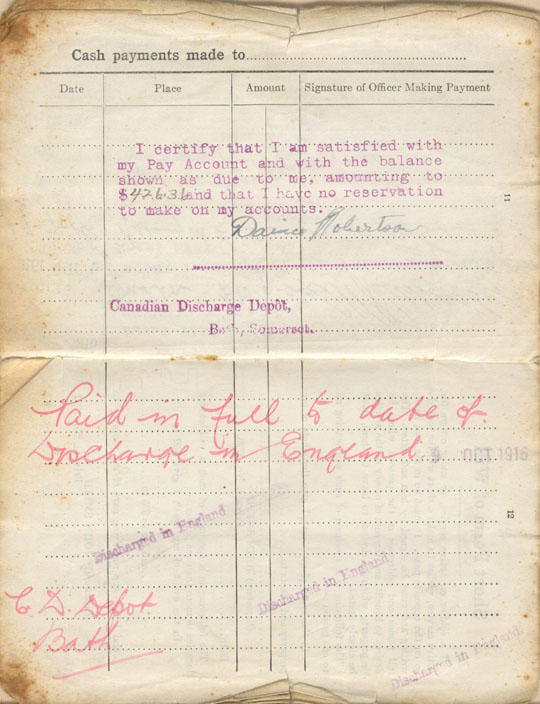 Cash payments made to
Date Place Amount Signature of Officer Making Payment
I certify that I am satisfied with
my Pay Account and with the balance
shown as due to me, amounting to
$426.36 and that I have no reservation
to make on my accounts.
Robertson
11
Canadian Discharge Depôt,
Bath, Somerset.
Paid in full to date of
Discharge in England
9 OCT. 1916
12
Discharged in England
Discharged in England
C. D. Depot
Bath
Discharged in England